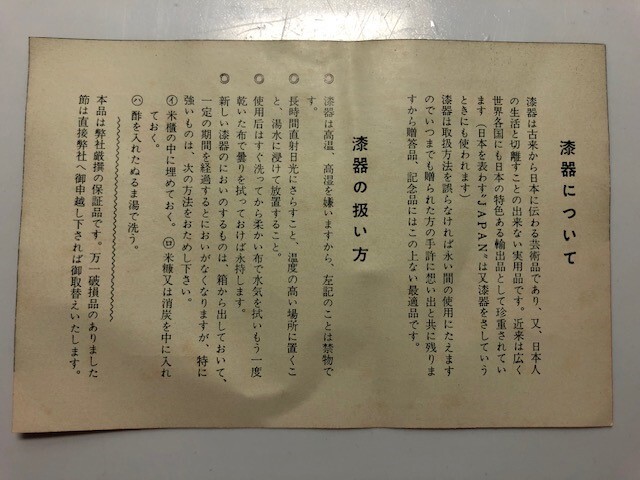 漆器について
漆器は古来から日本に伝わる芸術品であり、又、日本人
の生活と切離すことの出来ない実用品です。近来は広く
世界各国にも日本の特色ある輸出品として珍重されてい
ます（日本を表わす〝JAPAN〟は又漆器をさしていう
ときにも使われます）
漆器は取扱方法を誤らなければ永い間の使用にたえます
のでいつまでも贈られた方の手許に想い出と共に残りま
すから贈答品、記念品にはこの上ない最適品です。
漆器の扱い方
◎ 漆器は高温、高湿を嫌いますから、左記のことは禁物で
す。
◎ 長時間直射日光にさらすこと、温度の高い場所に置くこ
と、湯水に浸けて放置すること。
◎ 使用后はすぐ洗ってから柔かい布で水気を拭いもう一度
乾いた布で曇りを拭っておけば永持します。
◎ 新しい漆器のにおいのするものは、箱から出しておいて、
一定の期間を経過するとにおいがなくなりますが、特に
強いものは、次の方法をおためし下さい。
㋑ 米櫃の中に埋めておく。㋺ 米糠又は消炭を中に入れ
ておく。
㋩ 酢を入れたぬるま湯で洗う。
本品は弊社厳撰の保証品です。万一破損品のありました
節は直接弊社へ御申越し下されば御取替えいたします。